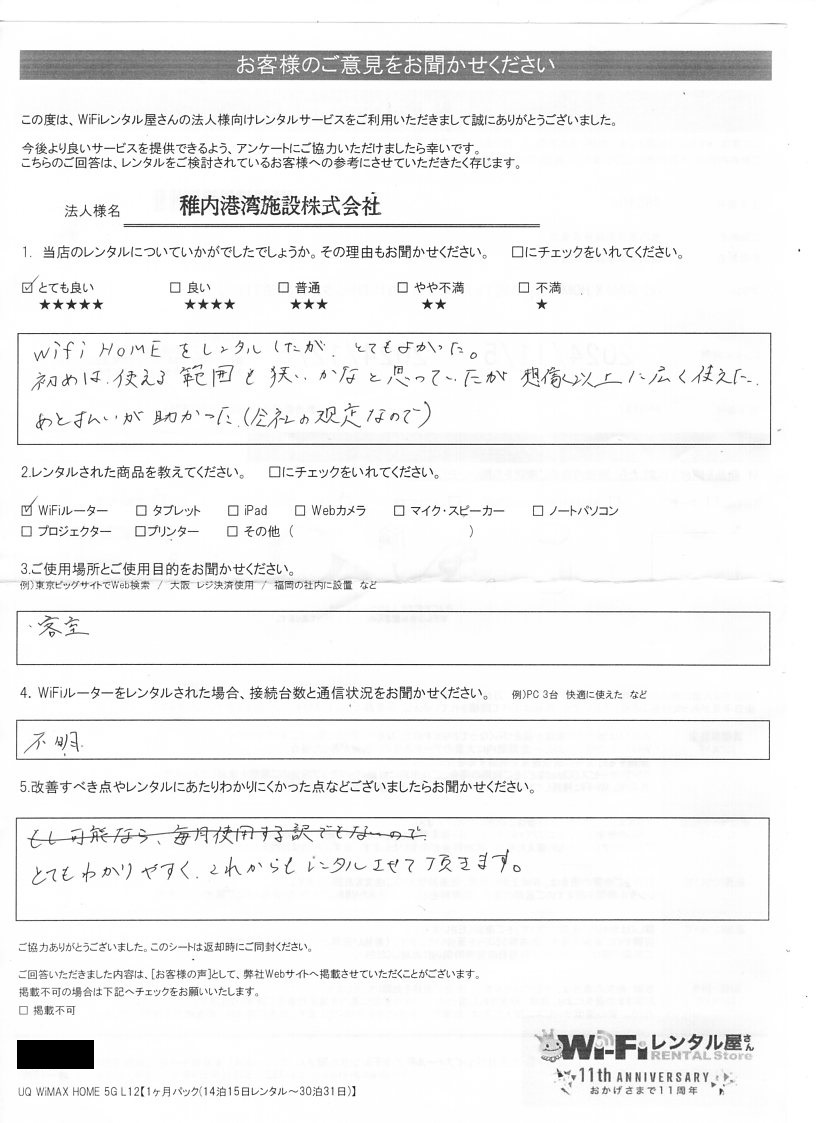 お客様のご意見をお聞かせください
この度は、WiFiレンタル屋さんの法人様向けレンタルサービスをご利用いただきまして誠にありがとうございました。
今後より良いサービスを提供できるよう、アンケートにご協力いただけましたら幸いです。
こちらのご回答は、レンタルをご検討されているお客様への参考にさせていただきたく存じます。
法人様名 稚内港湾施設株式会社
1. 当店のレンタルについていかがでしたでしょうか。その理由もお聞かせください。 □にチェックをいれてください。
☑ とても良い □ 良い □ 普通 □ やや不満 □ 不満
★★★★★ ★★★★ ★★★ ★★ ★
Wifi HOMEをレンタルしたが、とてもよかった。
初めは、使える範囲も狭いかなと思っていたが想像以上に広く使えた。
あとばらいが助かった(会社の規定なので)
2.レンタルされた商品を教えてください。 □にチェックをいれてください。
☑ WiFiルーター □ タブレット □ iPad □ Webカメラ □ マイク・スピーカー □ ノートパソコン
□ プロジェクター □プリンター □ その他 ( )
3.ご使用場所とご使用目的をお聞かせください。
例)東京ビッグサイトでWeb検索 / 大阪 レジ決済使用 / 福岡の社内に設置 など
・客室
4. WiFiルーターをレンタルされた場合、接続台数と通信状況をお聞かせください。 例)PC 3台 快適に使えた など
不明.
5.改善すべき点やレンタルにあたりわかりにくかった点などございましたらお聞かせください。
もし可能なら、毎月使用する訳でもないので
とてもわかりやすく、これからもレンタルさせて頂きます。
ご協力ありがとうございました。このシートは返却時にご同封ください。
ご回答いただきました内容は、[お客様の声]として、弊社Webサイトへ掲載させていただくことがございます。
掲載不可の場合は下記へチェックをお願いいたします。
□ 掲載不可
Wi-Fiレンタル屋さん
RENTAL Store
11th ANNIVERSARY
おかげさまで11周年
UQ WiMAX HOME 5G L12【1ヶ月パック(14泊15日レンタル～30泊31日)】